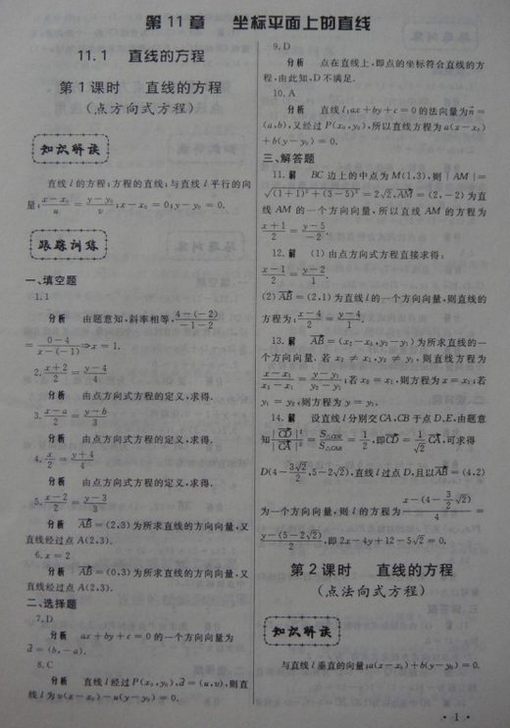 第11章 坐标平面上的直线
11.1 直线的方程
第1课时 直线的方程
(点方向式方程)
知识解读
直线 l 的方程;方程的直线;与直线 l 平行的向
量;(x-x₀)/u=(y-y₀)/v;x-x₀=0;y-y₀=0.
跟踪训练
一、填空题
1.1
分析 由题意知,斜率相等,(4-(-2))/(-1-2)
=(0-4)/(x-(-1))⇒x=1.
2.(x+2)/2=(y-4)/4
分析 由点方向式方程的定义,求得.
3.(x-a)/2=(y-b)/3
分析 由点方向式方程的定义,求得.
4.x/2=(y+4)/4
分析 由点方向式方程的定义,求得.
5.(x-2)/2=(y-3)/3
分析 AB=(2,3)为所求直线的方向向量,又
直线经过点 A(2,3).
6.x=2
分析 AB=(0,3)为所求直线的方向向量,又
直线经过点 A(2,3).
二、选择题
7.D
分析 ax+by+c=0 的一个方向向量为
d=(b,-a).
8.C
分析 直线 l 经过 P(x₀,y₀),d=(u,v),则直
线 l 为 v(x-x₀)-u(y-y₀)=0.
9.D
分析 点在直线上,即点的坐标符合直线的方
程,由此知,D 不满足.
10.A
分析 直线 l:ax+by+c=0 的法向量为n=
(a,b),又经过 P(x₀,y₀),所以直线方程为 a(x-x₀)
+b(y-y₀)=0.
三、解答题
11.解 BC 边上的中点为 M(1,3),则|AM|=
√((1+1)²+(3-5)²)=2√2,AM=(2,-2)为直
线 AM 的一个方向向量,所以直线 AM 的方程为
(x+1)/2=(y-5)/(-2).
12.解 (1)由点方向式方程直接求得:
(x-1)/2=(y-2)/1.
(2)AB=(2,1)为直线 l 的一个方向向量,则直线的
方程为:(x-4)/2=(y-4)/1.
13.解 AB=(x₂-x₁,y₂-y₁)为所求直线的一
个方向向量.若 x₂≠x₁,y₂≠y₁,则直线方程为
(x-x₁)/(x₂-x₁)=(y-y₁)/(y₂-y₁);若 x₂=x₁,则方程为 x=x₁;若
y₁=y₂,则方程为 y=y₁.
14.解 设直线 l 分别交 CA,CB 于点 D、E,由题意
知|CD|²/|CA|²==1/2,即CD=1/√2 CA,可求得
D(4-3√2/2,5-2√2),直线 l 过点 D,且以AB=(4,2)
为一个方向向量,则 l 的方程为(x-(4-3/2√2))/4=
(y-(5-2√2))/2,即 2x-4y+12-5√2=0.
第2课时 直线的方程
(点法向式方程)
知识解读
与直线 l 垂直的向量;a(x-x₀)+b(y-y₀)=0.
· 1 ·